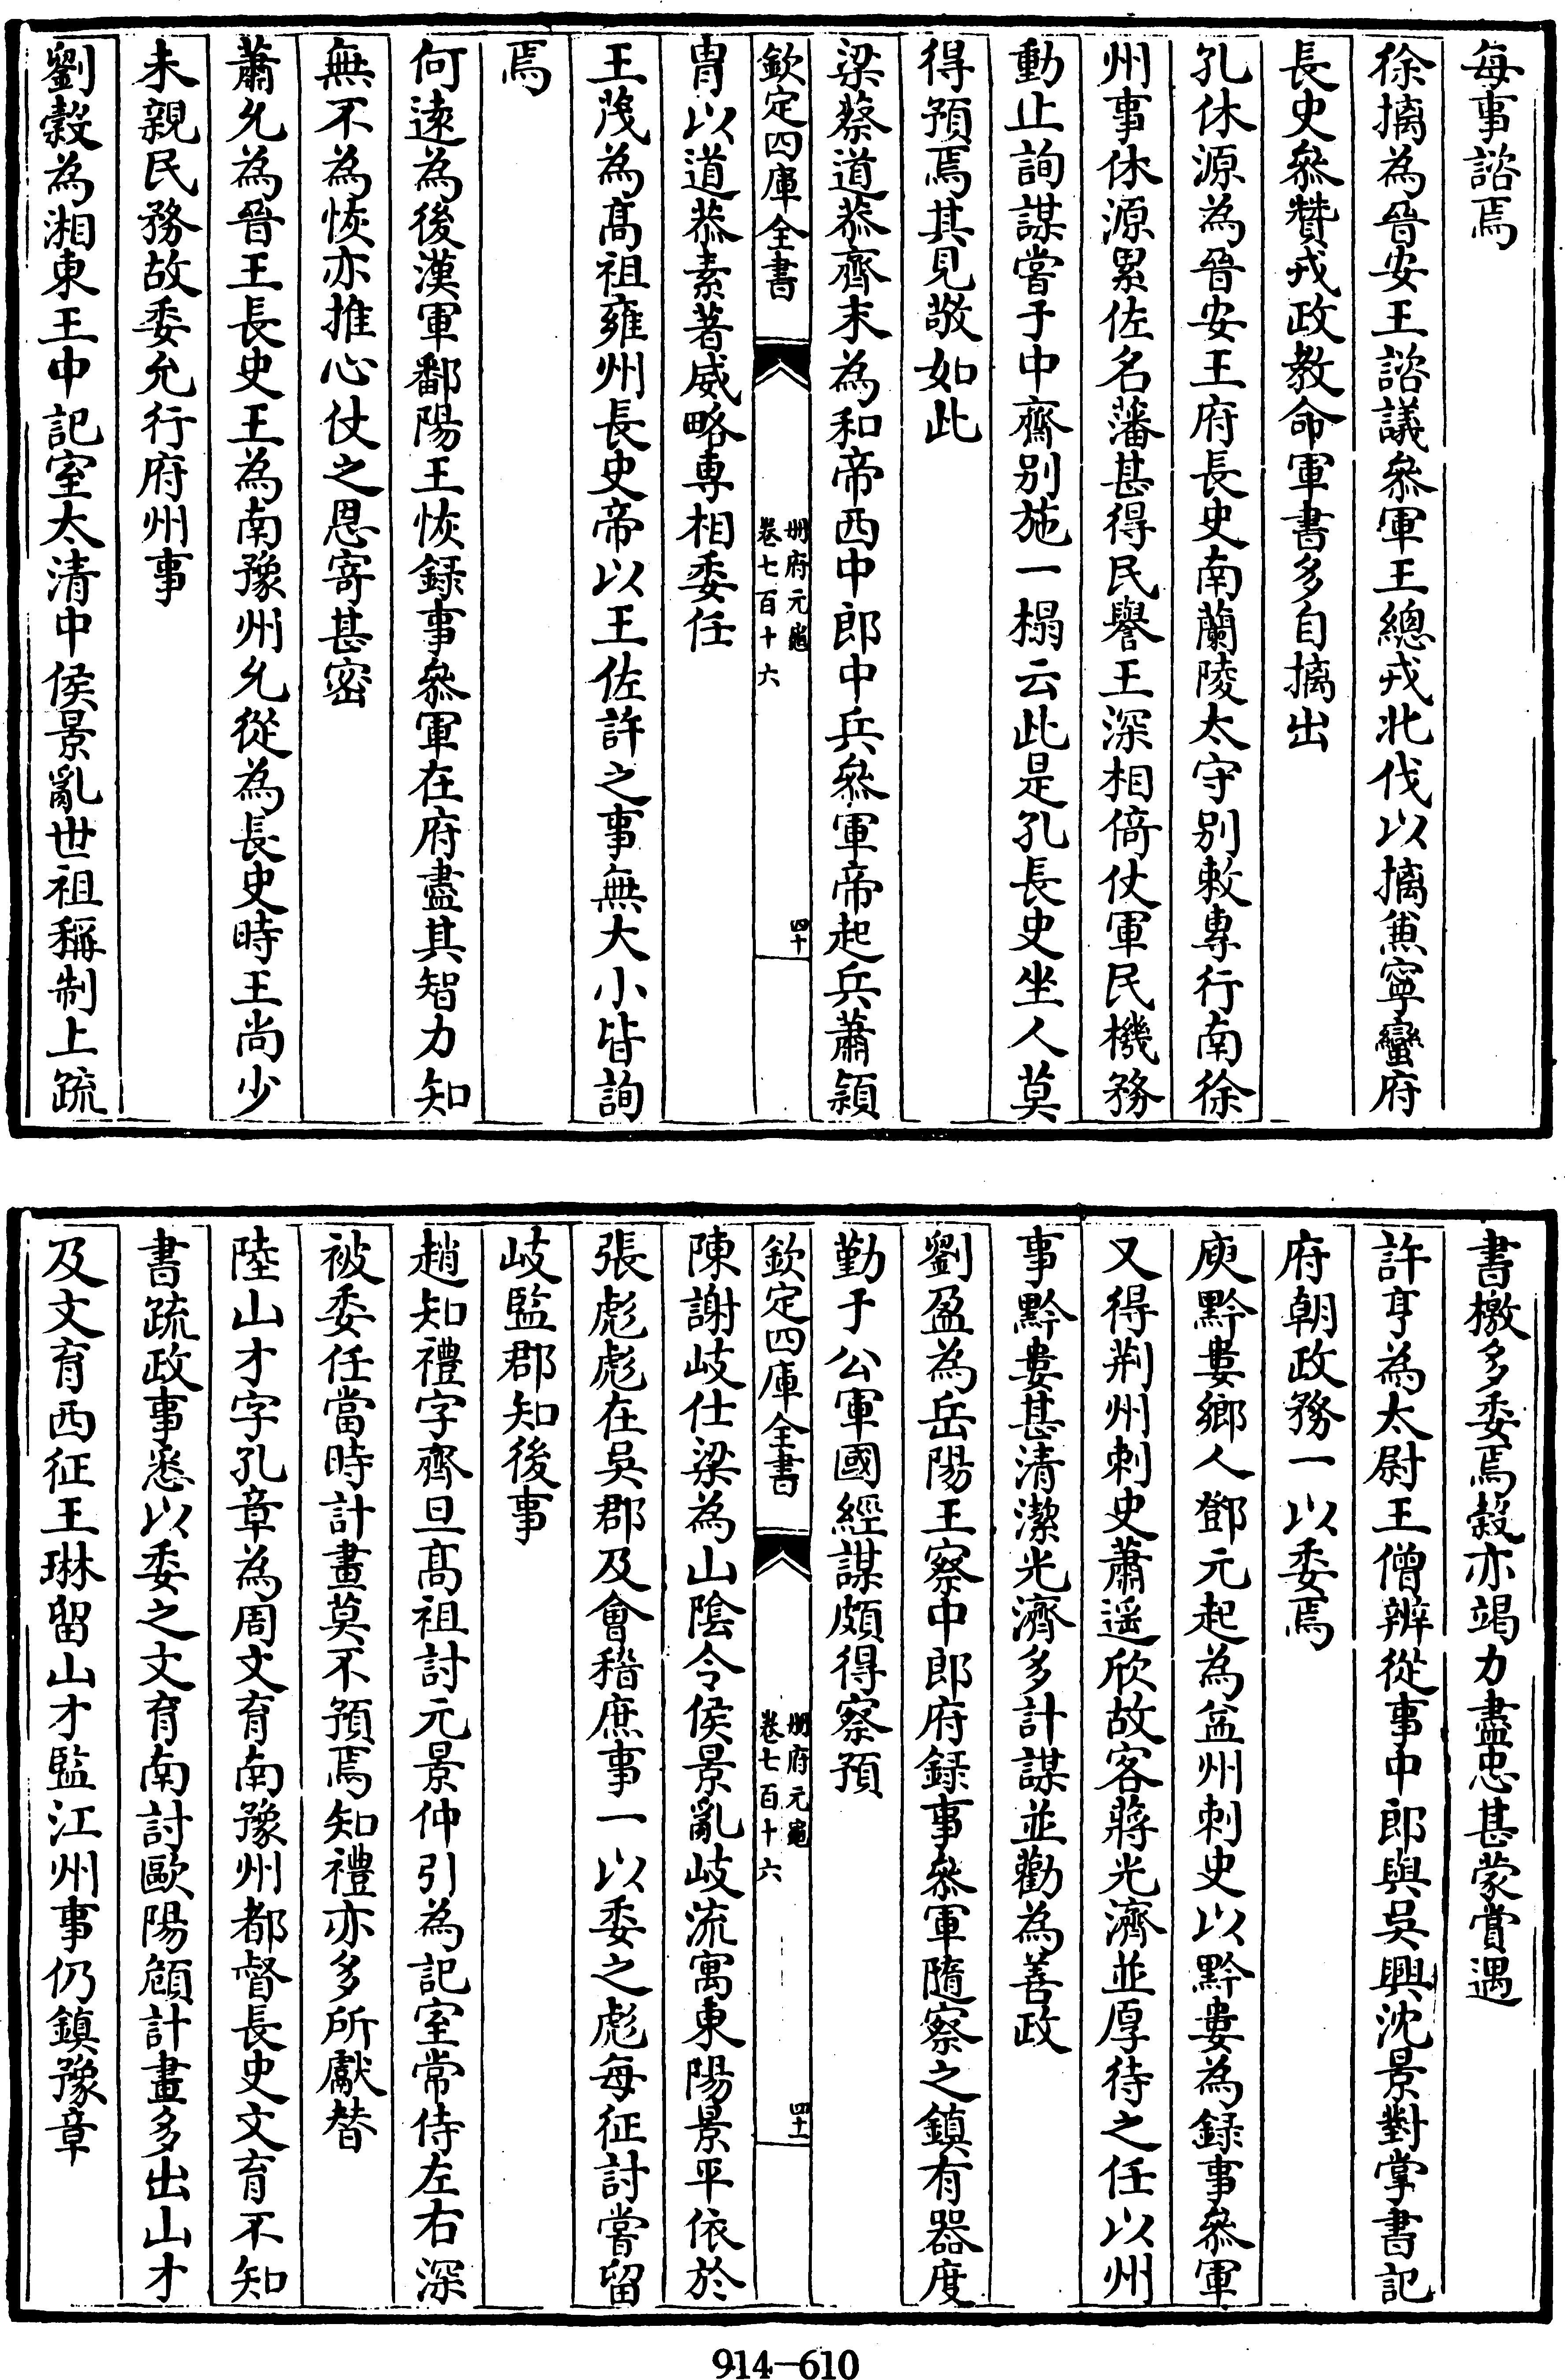 每事諮焉
徐摛為晉安王諮議叅軍王總戎北伐以摛兼寧蠻府
長史叅贊戎政教命軍書多自摛出
孔休源為晉安王府長史南蘭陵太守别敕專行南徐
州事休源累佐名藩甚得民譽王深相倚仗軍民機務
動止詢謀嘗于中齋别施一榻云此是孔長史坐人莫
得預焉其見敬如此
梁蔡道恭齊末為和帝西中郎中兵叅軍帝起兵蕭頴
欽定四庫全書
冊府元龜
卷七百十六
四十
胄以道恭素著威略專相委任
王茂為髙祖雍州長史帝以王佐許之事無大小皆詢
焉
何逺為後漢軍鄱陽王恢録事叅軍在府盡其智力知
無不為恢亦推心仗之恩寄甚密
蕭允為晉王長史王為南豫州允從為長史時王尚少
未親民務故委允行府州事
劉瑴為湘東王中記室太清中侯景亂世祖稱制上疏
書檄多委焉瑴亦竭力盡忠甚蒙賞遇
許亨為太尉王僧辨從事中郎與吳興沈景對掌書記
府朝政務一以委焉
庾黔婁鄉人鄧元起為益州刺史以黔婁為録事叅軍
又得荆州刺史蕭遥欣故客蔣光濟並厚待之任以州
事黔婁甚清潔光濟多計謀並勸為善政
劉盈為岳陽王察中郎府録事叅軍隨察之鎮有器度
勤于公軍國經謀頗得察預
欽定四庫全書
冊府元龜
卷七百十六
四十一
陳謝岐仕梁為山陰令侯景亂岐流寓東陽景平依於
張彪彪在吳郡及會稽庶事一以委之彪每征討嘗留
岐監郡知後事
趙知禮字齊旦髙祖討元景仲引為記室常侍左右深
被委任當時計畫莫不預焉知禮亦多所獻替
陸山才字孔章為周文育南豫州都督長史文育不知
書疏政事悉以委之文育南討歐陽頠計畫多出山才
及文育西征王琳留山才監江州事仍鎮豫章
914-610